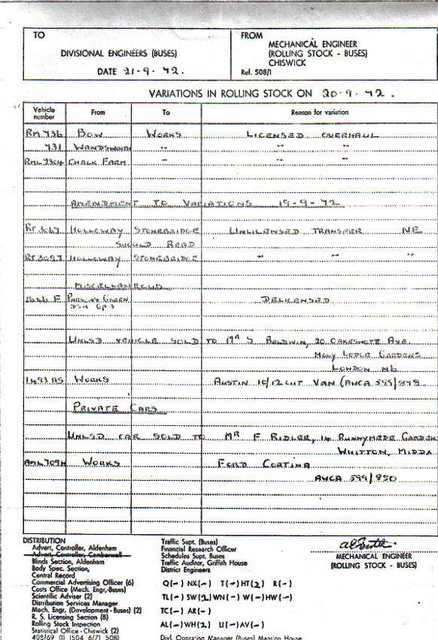 TO
DIVISIONAL ENGINEERS (BUSES)
DATE 21-9-72.
FROM
MECHANICAL ENGINEER
(ROLLING STOCK - BUSES)
CHISWICK
Ref. 508/1
VARIATIONS IN ROLLING STOCK ON 20-9-72.
Vehicle number From To Reason for variation
RM 736 BOW WORKS LICENSED OVERHAUL
731 WANDSWORTH " " "
RML 2304 CHALK FARM " " "
AMENDMENT TO VARIATIONS 19-9-72
HOLLOWAY STONEBRIDGE UNLICENSED TRANSFER NE
ROAD
HOLLOWAY STONEBRIDGE " " "
MISCELLANEOUS
PARSONS GREEN DELICENSED
UNLSD VEHICLE SOLD TO MR S BALDWIN, 20 OAKESHOTT AVE.
HOLY LODGE GARDENS
LONDON N6
1493 AS WORKS AUSTIN 10/12 CWT VAN (AWCA 599/949
PRIVATE CARS
UNLSD CAR SOLD TO MR F RIDLER, 14 RUNNYMEDE GARDENS
WHITTON, MIDDX
WORKS FORD CORTINA
AWCA 599/950
DISTRIBUTION
Advert, Controller, Aldenham
Advert, Controller, Camberwell
Blinds Section, Aldenham
Body Spec. Section,
Central Record
Commercial Advertising Officer (6)
Costs Office (Mech. Engr.-Buses)
Scientific Adviser (2)
Distribution Services Manager
Mech. Engr. (Development - Buses) (2)
R. S. Licensing Section (8)
Rolling Stock Inspection
Statistical Office - Chiswick (2)
Traffic Supt. (Buses)
Financial Research Officer
Schedules Supt. Buses
Traffic Auditor, Griffith House
District Engineers
Q(-) NX(-) T(-) HT(2) R(-)
TL(-) SW(2) WN(-) W(-) HW(-)
TC(-) AR(-)
AL(-) WH(2) U(-) AV(-)
Divl. Operating Manager (Buses) Mansion House
MECHANICAL ENGINEER
(ROLLING STOCK - BUSES)